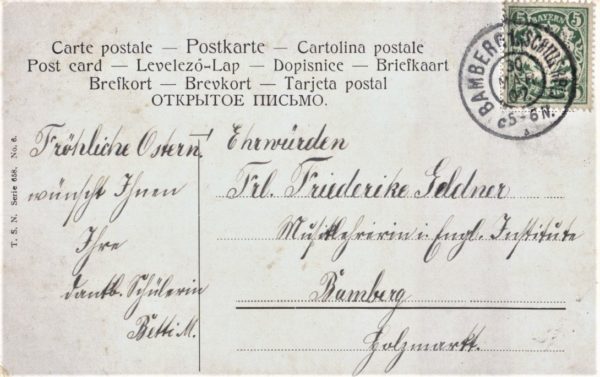 Carte postale — Postkarte — Cartolina postale
Post card — Levelező-Lap — Dopisnice — Briefkaart
Brefkort — Brevkort — Tarjeta postal
ОТКРЫТОЕ ПИСЬМО.
5 5
BAYERN
BAMBERG
30
07
5-6N.
T. S. N. Serie 658. No. 6.
Fröhliche Ostern!
wünscht Ihnen
Ihre
dantb. Schülerin
Betti M.
Ehrwürden
Frl. Friederike Geldner
Musiklehrerin i. Engl. Institute
Bamberg
Holzmarkt.